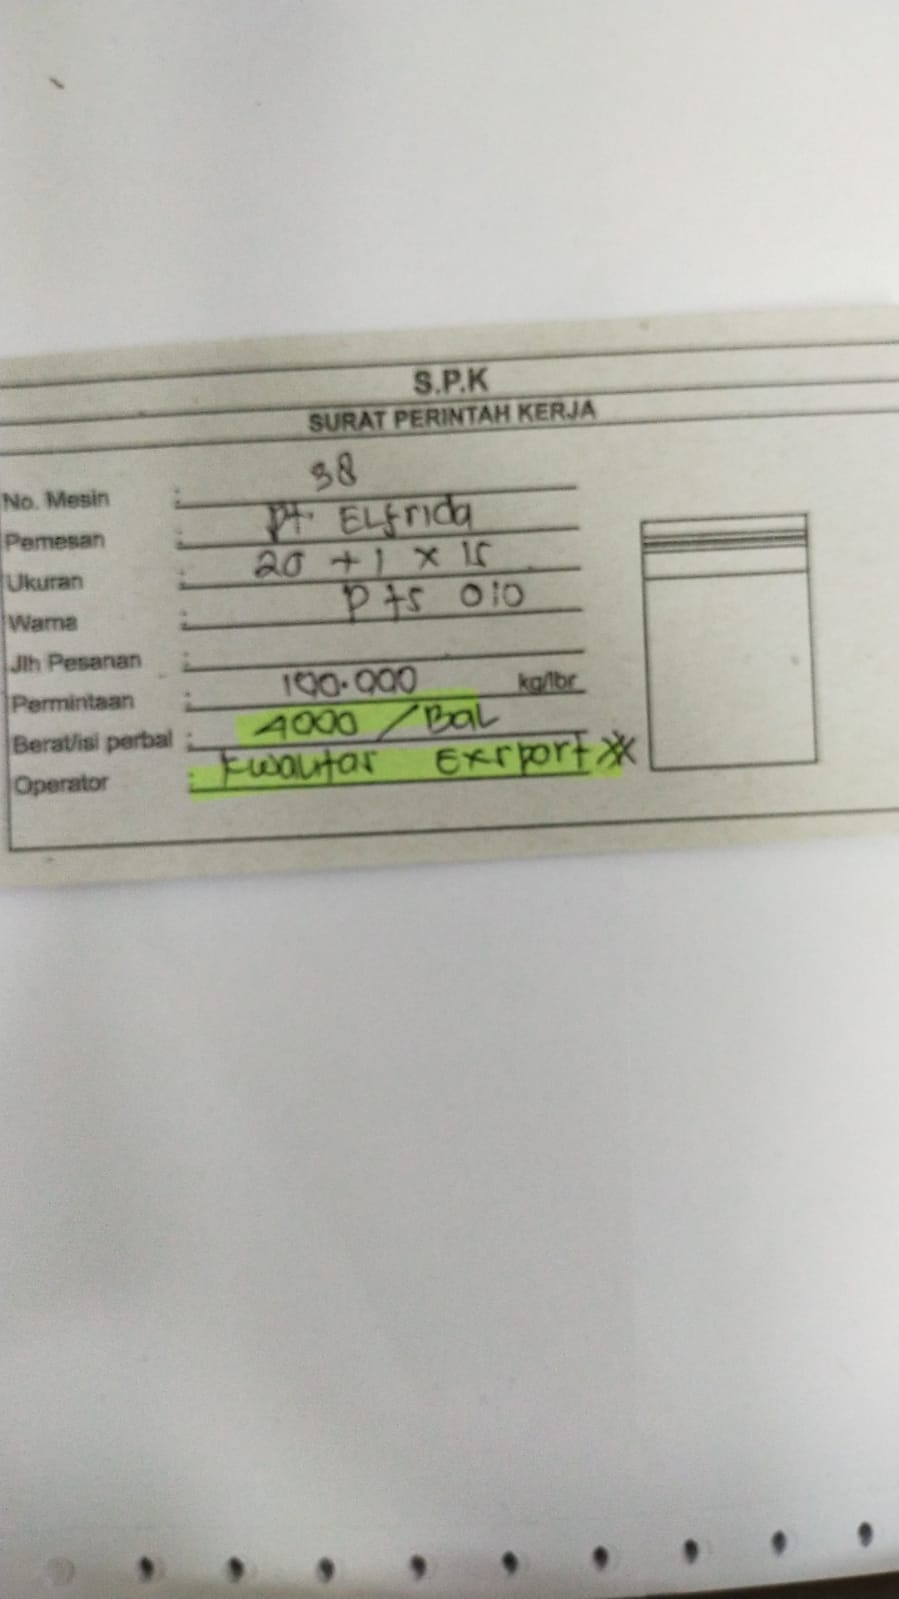 S.P.K
SURAT PERINTAH KERJA
No. Mesin : 38
Pemesan : Pt. Elfrida
Ukuran : 20 + 1 x 15
Warna : Pts 010
Jlh Pesanan :
Permintaan : 100.000 kg/lbr
Berat/isi perbal : 4000 / Bal
Operator : Kwalitas Exrport